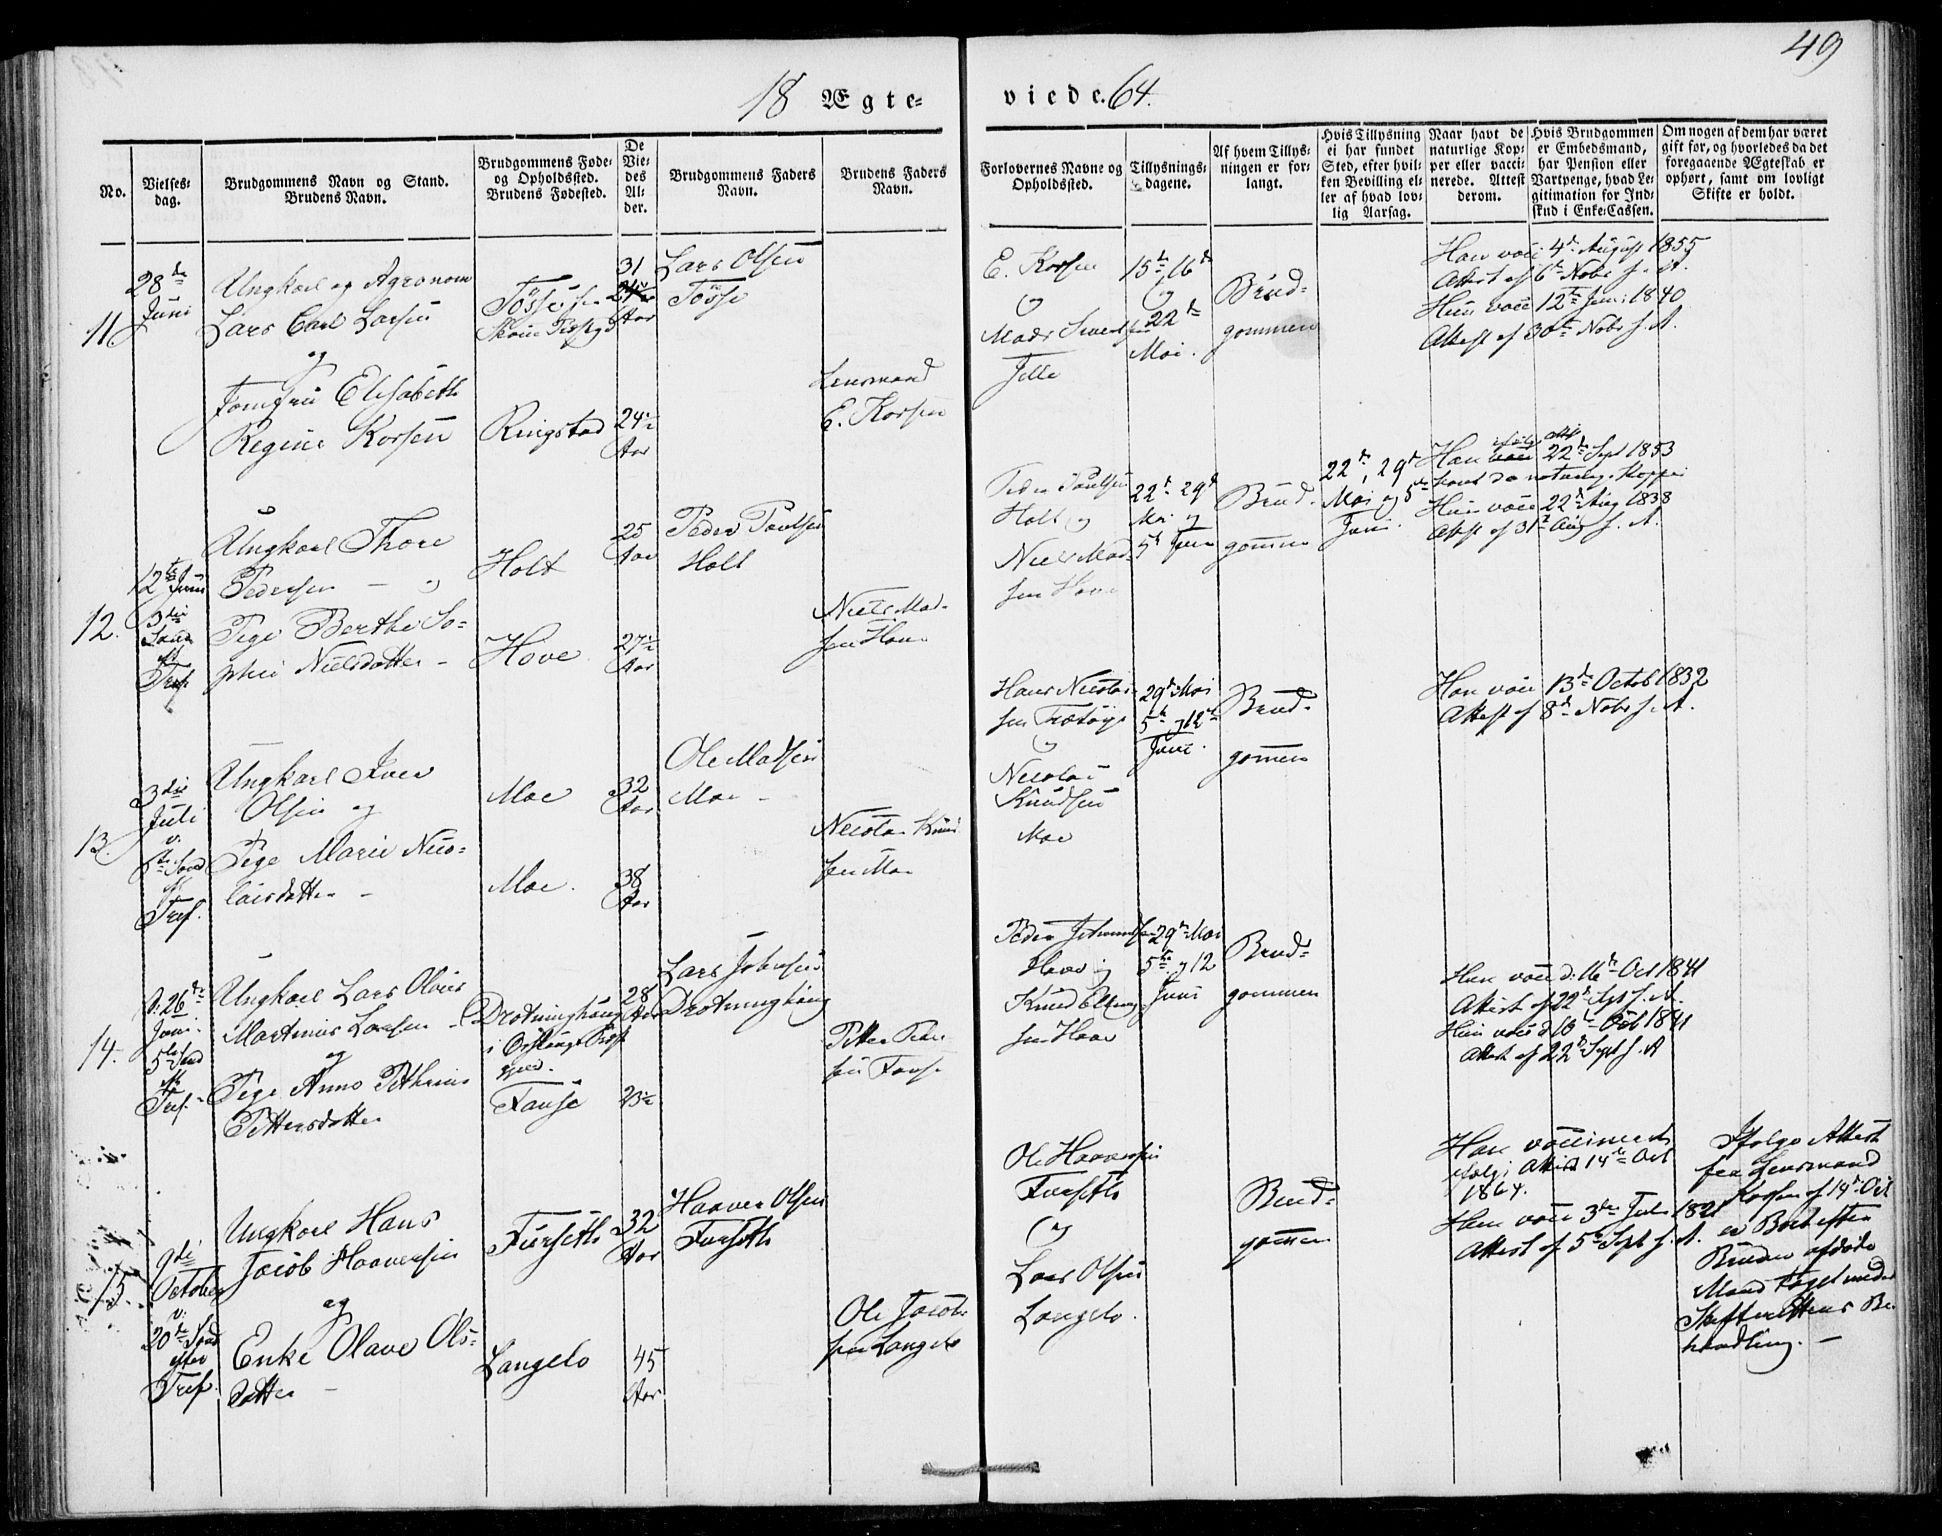 49
18 Ægte-
viede. 64.
No.
Vielses-
dag.
Brudgommens Navn og Stand.
Brudens Navn.
Brudgommens Føde-
og Opholdssted.
Brudens Fødested.
De
Vie-
des
Al-
der.
Brudgommens Faders
Navn.
Brudens Faders
Navn.
Forlovernes Navne og
Opholdssted.
Tillysnings-
dagene.
Af hvem Tillys-
ningen er for-
langt.
Hvis Tillysning
ei har fundet
Sted, efter hvil-
ken Bevilling el-
ler af hvad lov-
lig Aarsag.
Naar havt de
naturlige Kop-
per eller vacci-
nerede. Attest
derom.
Hvis Brudgommen
er Embedsmand,
har Pension eller
Vartpenge, hvad Le-
gitimation for Ind-
skud i Enke-Cassen.
Om nogen af dem har været
gift før, og hvorledes da det
foregaaende Ægteskab er
ophørt, samt om lovligt
Skifte er holdt.
11.
28de
Juni
Ungkarl og Agronom
Lars Carl Larsen
og
Jomfru Elisabeth
Regine Korsen
Tøsse
Ringstad
31
Aar
24½
Aar
Lars Olsen
Tøsse
Lensmand
E. Korsen
E. Korsen
og
Mads Sivertsen
Jelle
15de, 16de
og
22de
Mai.
Brud-
gommen
Han vacc 4de August 1855
Attest af 6te Nobr s. A.
Hun vacc 12te Juni 1840
Attest af 30te Nobr s. A.
12.
12te Juni
3die
Sønd
eft
Tref.
Ungkarl Thore
Pedersen og
Pige Berthe So-
phie Nielsdatter
Holt
Hove
25
Aar
27½
Aar
Peder Paulsen
Holt
Niels Mad-
sen Hove
Peder Paulsen
Holt og
Niels Mad-
sen Hove
22de 29de
Mai og
5te Juni
Brud-
gommen
22de, 29de
Mai og 5te
Juni.
Han ifølge Att. 22de Sept 1853
havt de naturlige Kopper
Hun vacc 22de Aug 1838
Attest af 31te Aug s. A.
13.
3die
Juli
v.
6te Sønd
eft
Tref.
Ungkarl Iver
Olsen og
Pige Marie Nico-
laisdatter
Moe
Moe.
32
Aar
38
Aar
Ole Madsen
Moe
Nicolai Knud
sen Moe
Hans Nicolai
sen
og
Nicolai
Knudsen
Moe
29de Mai
5te og 12te
Juni.
Brud-
gommen
Han vacc 13de Octob 1832
Attest af 8de Nobr s. A.
14.
D. 26de
Juni
5te Sønd
eft
Tref.
Ungkarl Lars Olaus
Martinus Larsen
og
Pige Anne Pethrine
Pettersdatter
Drotninghaug
i Ørskougs Præst
gjeld.
Fause
28
Aar
23½
Lars Johnsen
Drotninghaug
Petter Peder
sen Fause
Peder
Hove og
Knud Elling
sen Hove
29de Mai
5te og 12
Juni
Brud-
gommen
Han vacc d. 16de Oct 1841
Attest af 22de Spt s. A.
Hun vacc d 10de Oct 1841
Attest af 22de Sept s. A
15.
9de
October
v.
20de Sønd
efter
Tref.
Ungkarl Hans
Jacob Haavensen
og
Enke Olave Ols-
datter
Furseth
Langelo
32
Aar
45
Aar
Haaven Olsen
Furseth
Ole Jacob-
sen Langelo
Ole Haavensen
Furseth
og
Lars Olsen
Langelo.
Brud-
gommen
Han vaccineret
ifølge Attest 14de Oct
1864.
Hun vacc 3die Juli 1821
Attest af 5te Sept s. A.
Ifølge Attest
fra Lensmand
Korsen af 14de Oct
er Boet efter
Bruden afdøde
Mand taget under
Skifterettens Be-
handling.